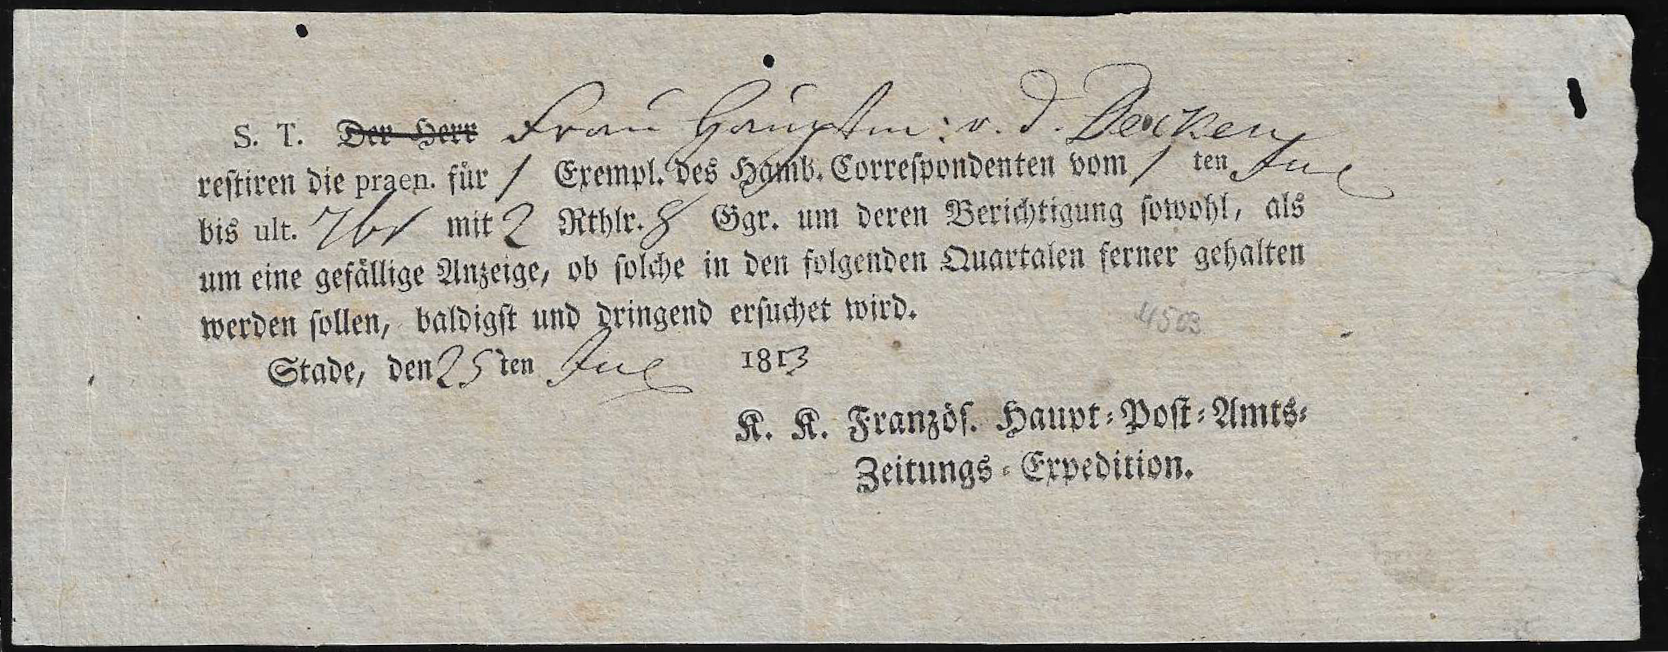 S. T. Der Herr Frau Hauptm: v. d. Decken
reſtiren die praen. für 1 Exempl. des Hamb. Correſpondenten vom 1 ten Jul
bis ult. 7br mit 2 Rthlr. 8 Ggr. um deren Berichtigung ſowohl, als
um eine gefällige Anzeige, ob ſolche in den folgenden Quartalen ferner gehalten
werden ſollen, baldigſt und dringend erſuchet wird.
4503
Stade, den 25 ten Jul 1813
K. K. Franzöſ. Haupt-Poſt-Amts-
Zeitungs-Expedition.